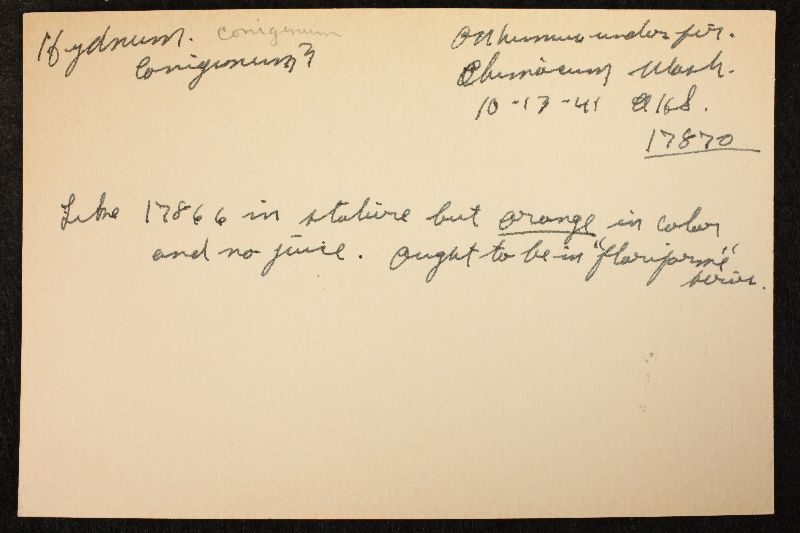 Hydnum. conigenum
Conigenum?
On humus under fir.
Chimacum Wash.
10-17-41 AHS.
17870
Like 17866 in stature but orange in color
and no juice. Ought to be in "floriforme"
series.